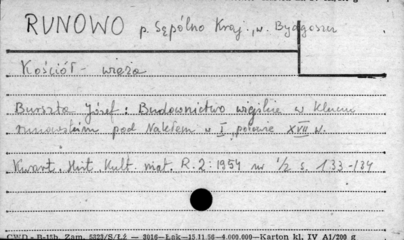 RUNOWO p. Sępólno Kraj., w. Bydgoszcz
Kościół - wieża
Burszta Józef: Budownictwo wiejskie w kluczu
runowskim pod Nakłem w I połowie XVIII w.
Kwart. Hist. Kult. mat. R. 2: 1954 nr 1/2 s. 133-134
CWD - B-15b. Zam. 5323/S/Lż — 3016—Łok—15.11.56—4.000.000—Karton kl. IV A1/200 g